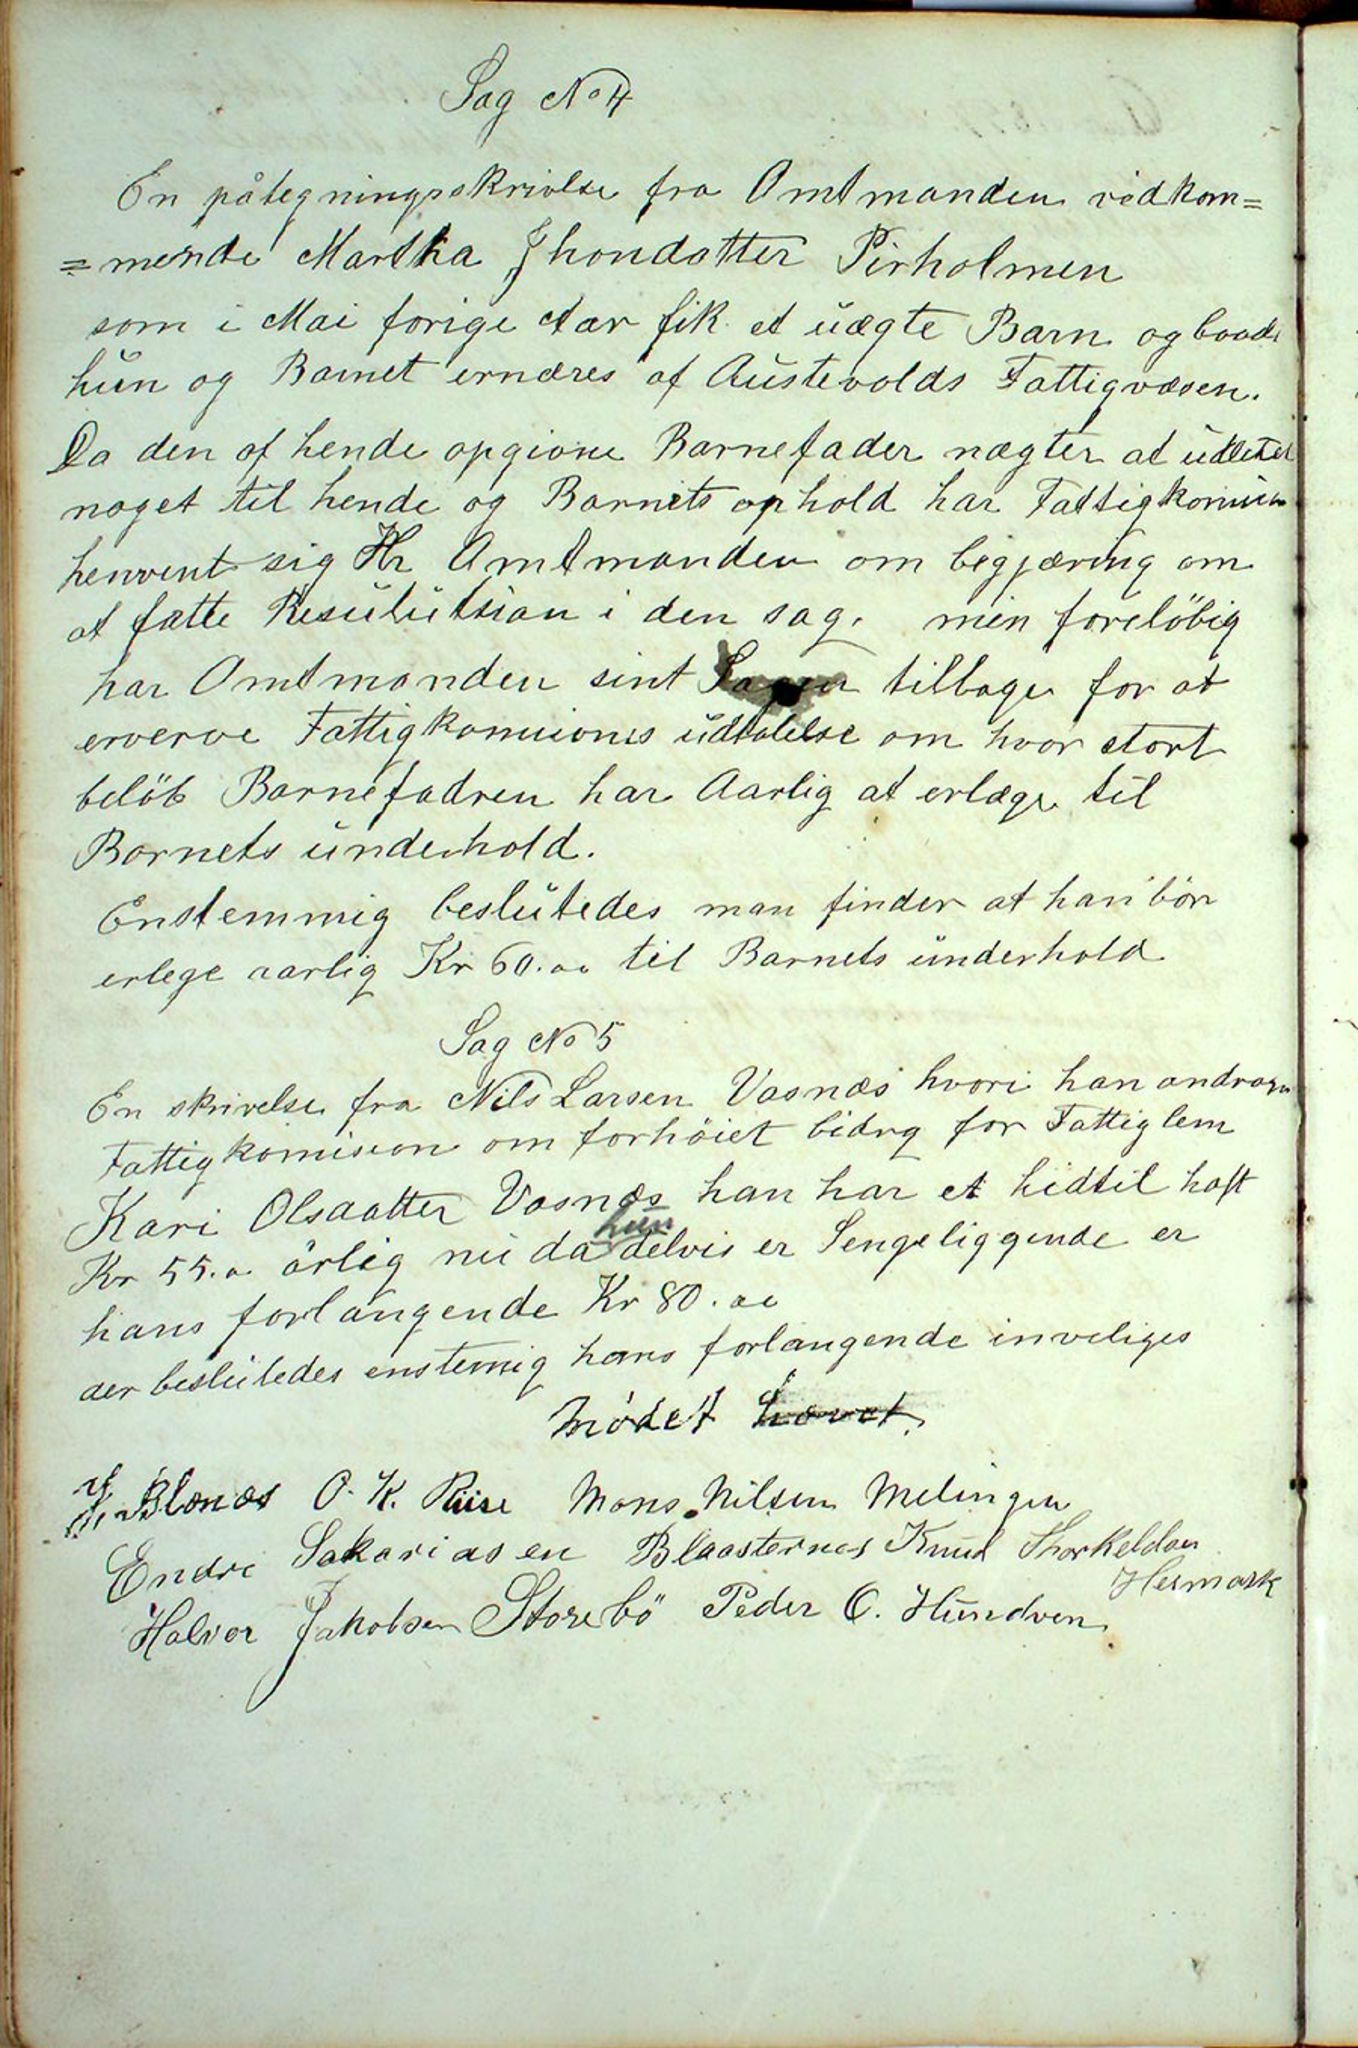 Sag No 4
En påtegningsskrivlse fra Amtmanden vedkom=
=mende Martha Jhondatter Pirholmen
som i Mai forige Aar fik et uægte Barn og baade
hun og Barnet ernæres af Austevolds Fattigvæsen.
Da den af hende opgivne Barnefader nægter at
noget til hende og Barnets ophold har
henvent sig Hr Amtmanden om begjæring om
at fatte Resulutsion i den sag. men foreløbig
har Amtmanden sint Sagen tilbage for at
erverve Fattigkomisions udtalelse om hvor stort
beløb Barnefadren har Aarlig at erlæge til
Barnets underhold.
Enstemmig beslutedes man finder at han bör
erlege aarlig Kr 60.00 til Barnets underhold
Sag No 5
En skrivelse fra Nils Larsen Vasnæs hvori han
Fattigkomision om forhöiet bidrg for Fattiglem
Kari Olsdatter Vasnæs han har et hidtil haft
Kr 55.0 årlig nu da hun delvis er Sengeliggende er
hans forlangende Kr 80.00
der beslutedes enstemig hans forlangende inveliges
Mødet hævet.
Blænæs O. K. Riise Mons Nilsen Melingen
Endre Sakariasen Blaasternes Knud Thorkeldsen
Heimark
Halvor Jakobsen Storebö Peder O. Hundven